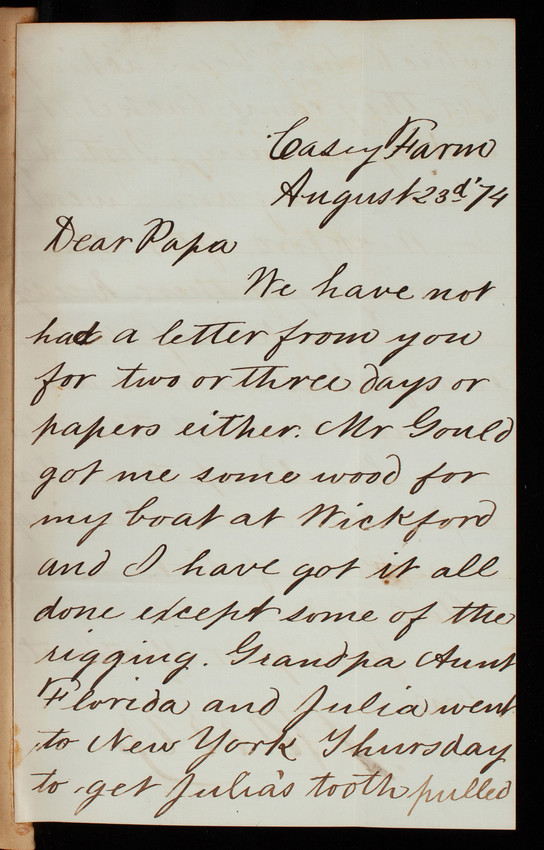 Casey Farm
August 23d '74
Dear Papa
We have not
had a letter from you
for two or three days or
papers either. Mr Gould
got me some wood for
my boat at Wickford
and I have got it all
done except some of the
rigging. Grandpa Aunt
Florida and Julia went
to New York Thursday
to get Julia's tooth pulled